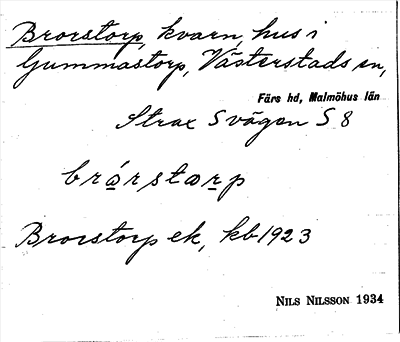 Brorstorp, kvarn, hus i
Gummastorp, Västerstads sn,
Färs hd, Malmöhus län
Strax S vägen S 8
brárstarp
Brorstorp ek, kb 1923
NILS NILSSON 1934